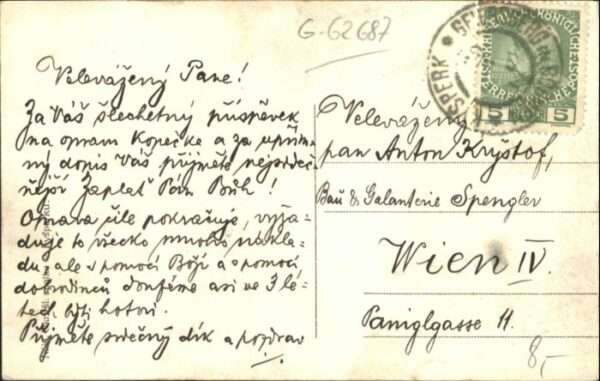 G-62687
Velevážený Pane!
Za Váš šlechetný příspěvek
na opravu Kopečke a za upřím
ný dopis Váš přijměte nejsrdeč
nější Zaplať Pán Bůh!
Oprava čile pokračuje, vyža-
duje to všecko mnoho nákla-
du, ale s pomocí Boží a pomocí
dobrodinců doufáme asi ve 3 lé-
tech býti hotovi.
Přijměte srdečný dík a pozdrav
Velevážený
pan Anton Kryštof,
Bau & Galanterie Spengler
Wien IV.
Paniglgasse 11.
8,-
5 5